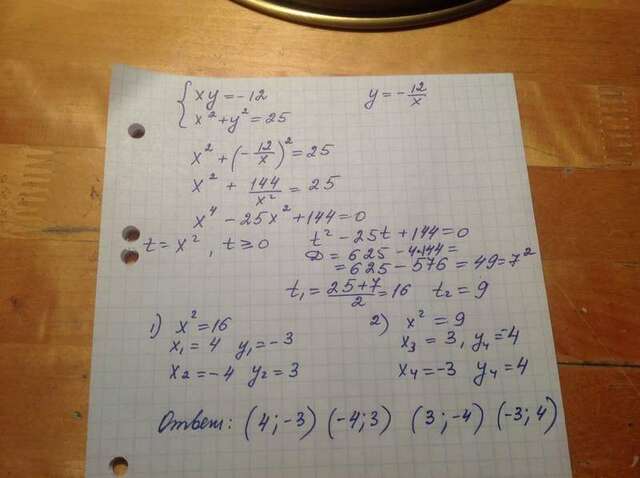 { xy = -12      y = -12/x
{ x² + y² = 25
x² + (-12/x)² = 25
x² + 144/x² = 25
x⁴ - 25x² + 144 = 0
t = x², t ≥ 0      t² - 25t + 144 = 0
D = 625 - 4·144 =
= 625 - 576 = 49 = 7²
t₁ = (25+7)/2 = 16      t₂ = 9
1) x² = 16      2) x² = 9
x₁ = 4  y₁ = -3      x₃ = 3, y₄ = -4
x₂ = -4  y₂ = 3      x₄ = -3  y₄ = 4
Ответ: (4; -3) (-4; 3) (3; -4) (-3; 4)